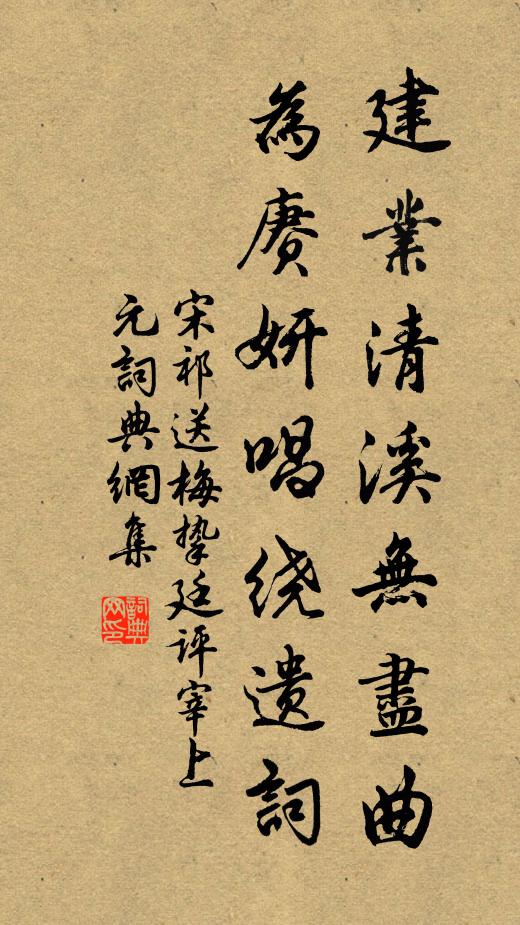 建業清溪無盡曲
為賡妍唱绕遺詞
宋祁送梅摯廷評宰上
元詞典網集
詞典网印